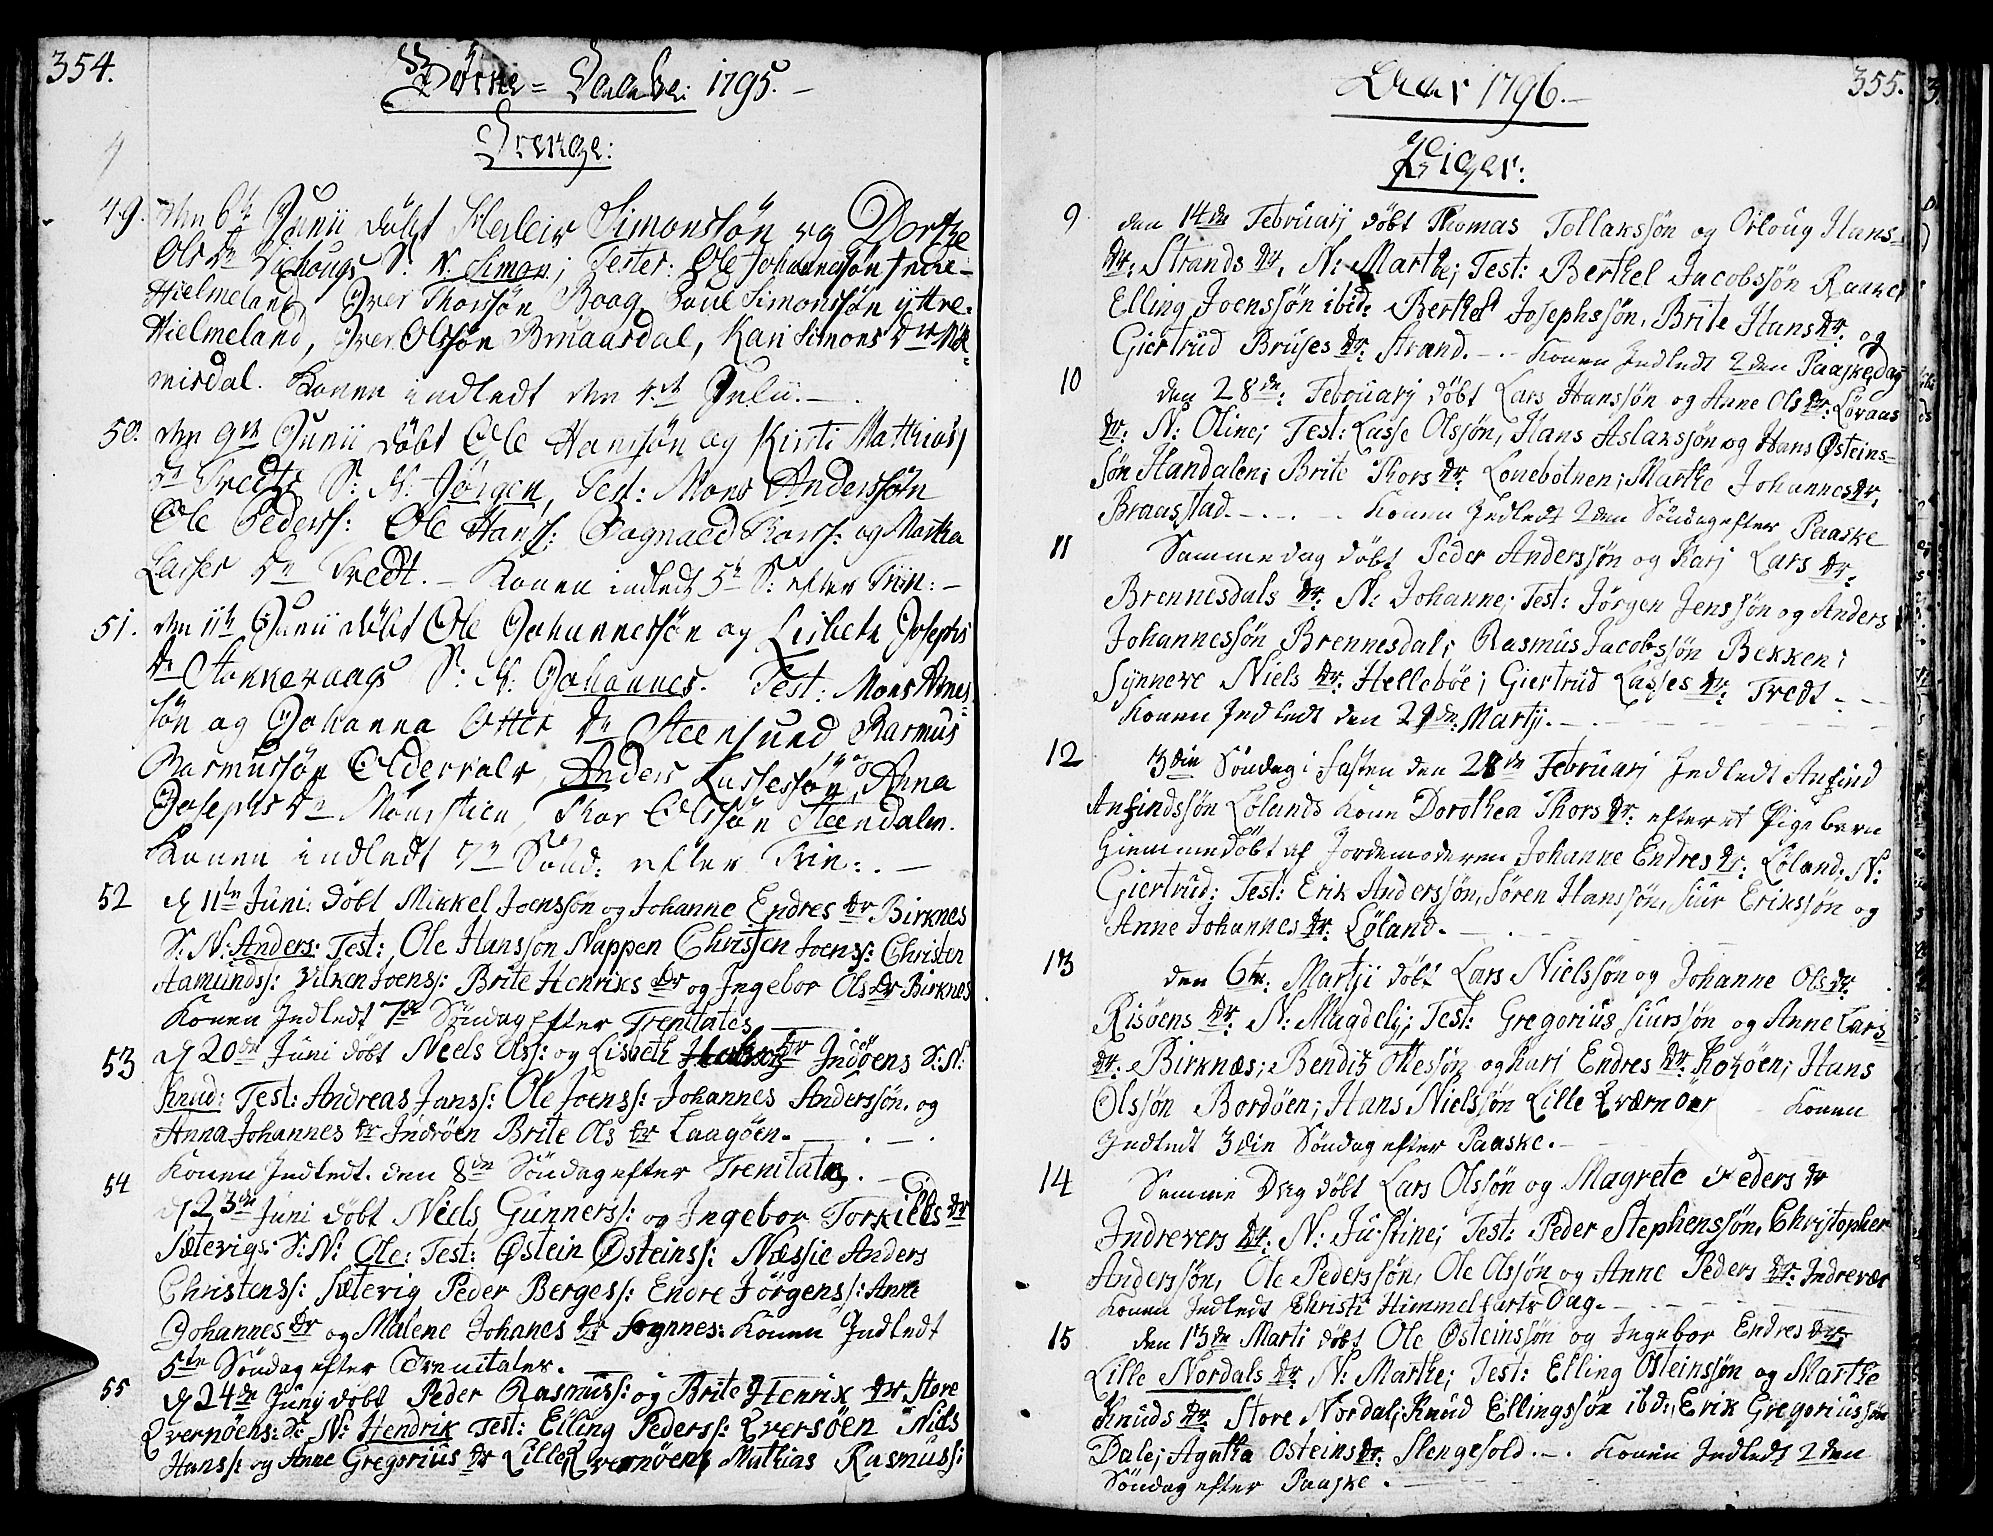 354.
Børne-Daabe: 1795.
Drenge:
49. den 6te Junii døbt Simonssøn og Dorthe
Ols Dr S: N: Simon; Tester: Ole Johannessøn Indre-
Hielmeland, Iver Thorssøn Poul Simonssøn yttre-
Hielmeland, Iver Olssøn Kari Simons Dr
misdal. Konen indledt den 4de Julii.
50. den 9de Junii døbt Ole Hanssøn og Kirsti Mathias
Dr Tredts S: N: Jörgen, Test: Mons Anderssøn
Ole Peders: Ole Hans: og Martha
Lasses Dr Tredt. - Konen indledt 5te S: efter Trin: -
51. den 11te Junii døbt Ole Johannessøn og Lisbeth Josephs
Dr S: N: Johannes. Test: Mons
søn og Johanna Dr Steensund Rasmus
Rasmussøn Anders Lassessøn, og Anna
Josephs Dr Thor Olssøn Steendalen.
Konen indledt 7de Sønd: efter Trin: . -
52 d 11te Juni: døbt Mikkel Joenssøn og Johanne Endres Dr Birknes
S: N: Anders: Test: Ole Hanssøn Nappen Christen Joens: Christen
Aamunds: Joens: Brite Henriks Dr og Ingebor Ols Dr Birknes
Konen Indledt 7de Söndag efter Trenitates
53 d 20de Juni døbt Neels Ols: og Lisbeth Dr Indöens S: N:
Knud: Test: Andreas Jans: Ole Joens: Johannes Anderssön. og
Anna Johannes Dr Indröen Brite Ols Dr Laagöen.
Konen Indledt. den 8de Söndag efter Trenitates.
54 d 23de Juni døbt Neels Gunners: og Ingebor Torkilds Dr
Sætevigs: S: N: Ole: Test: Østein Østeins: Næssie Anders
Christens: Sætevig Peder Berges: Endre Jörgens: Anne
Johannes Dr og Malene Johanes Dr Konen Indledt
5te Söndag efter Trenitates.
55 d 24de Junÿ døbt Peder Rasmus: og Brite Henrix Dr Store
Qvernöens: S: N: Hendrik Test: Elling Peders: Qversöen Niels
Hans: og Anne Gregorius Dr Lille Qvernöens Mathias Rasmus:
355.
Aar 1796.
Piger:
9 den 14de Februarj døbt Thomas Tollakssøn og Orloug Hans-
Dr. Strands Dr. N: Marthe; Test: Berthel Jacobssøn
Elling Joenssøn ibid: Berthel Josephssøn, Brite Hans Dr. og
Giertrud Bruses Dr. Strand. - Konen Indledt 2den Paaskedag
10 den 28de: Februarj døbt Lars Hanssøn og Anne Ols Dr: Løvaas
Dr: N: Oline; Test: Lasse Olssøn, Hans Aslakssøn og Hans Østeins-
søn Handalen; Brite Thors Dr. Lonebotnen; Marthe Johannes Dr.
Braastad. - Konen Indledt 2den Søndag efter Paaske
11 Samme dag døbt Peder Anderssøn og Karj Lars Dr.
Brennesdals Dr. N: Johanne; Test: Jørgen Jenssøn og Anders
Johannessøn Brennesdal; Rasmus Jacobssøn Bekken;
Synneve Niels Dr. Hellebøe; Giertrud Lasses Dr. Tredt -
Konen Indledt den 29de Martji.
12 3die Søndag i Fasten den 28de Februarj Indledt Anfind
Anfindssøn Lølands Kone Dorothea Thors Dr. efter et Pigebarn
Hiemmedøbt af Jordemoderen Johanne Endres Dr: Løland. N:
Giertrud: Test: Erik Anderssøn, Søren Hanssøn, Siur Erikssøn og
Anne Johannes Dr. Løland.
13 den 6te. Martji døbt Lars Nielssøn og Johanne Ols Dr.
Risøens Dr. N: Magdeli; Test: Gregorius Siurssøn og Anne Lars
Dr. Birknæs; Bendix Ottessøn og Kari Endres Dr. Hans
Olssøn Bordøen; Hans Nielssøn Lille Qværnöer Konen
Indledt 3die Søndag efter Paaske.
14 Samme Dag døbt Lars Olssøn og Magrete Peders Dr
Indrevers Dr. N: Justine; Test: Peder Stephenssøn, Christopher
Anderssøn, Ole Pederssøn, Ole Olssøn og Anne Peders Dr. Indrevær
Konen Indledt Christi Himmelfarts Dag.
15 den 13de Marti døbt Ole Østeinssøn og Ingebor Endres Dr.
Lille Nordals Dr. N: Marthe; Test: Elling Osteinssøn og Marthe
Knuds Dr. Store Nordal; Knud Ellingssøn ibd:, Erik Gregoriussøn
Dale; Agatha Osteins Dr. Slengesold. - Konen Indledt 2den
Søndag efter Paaske.